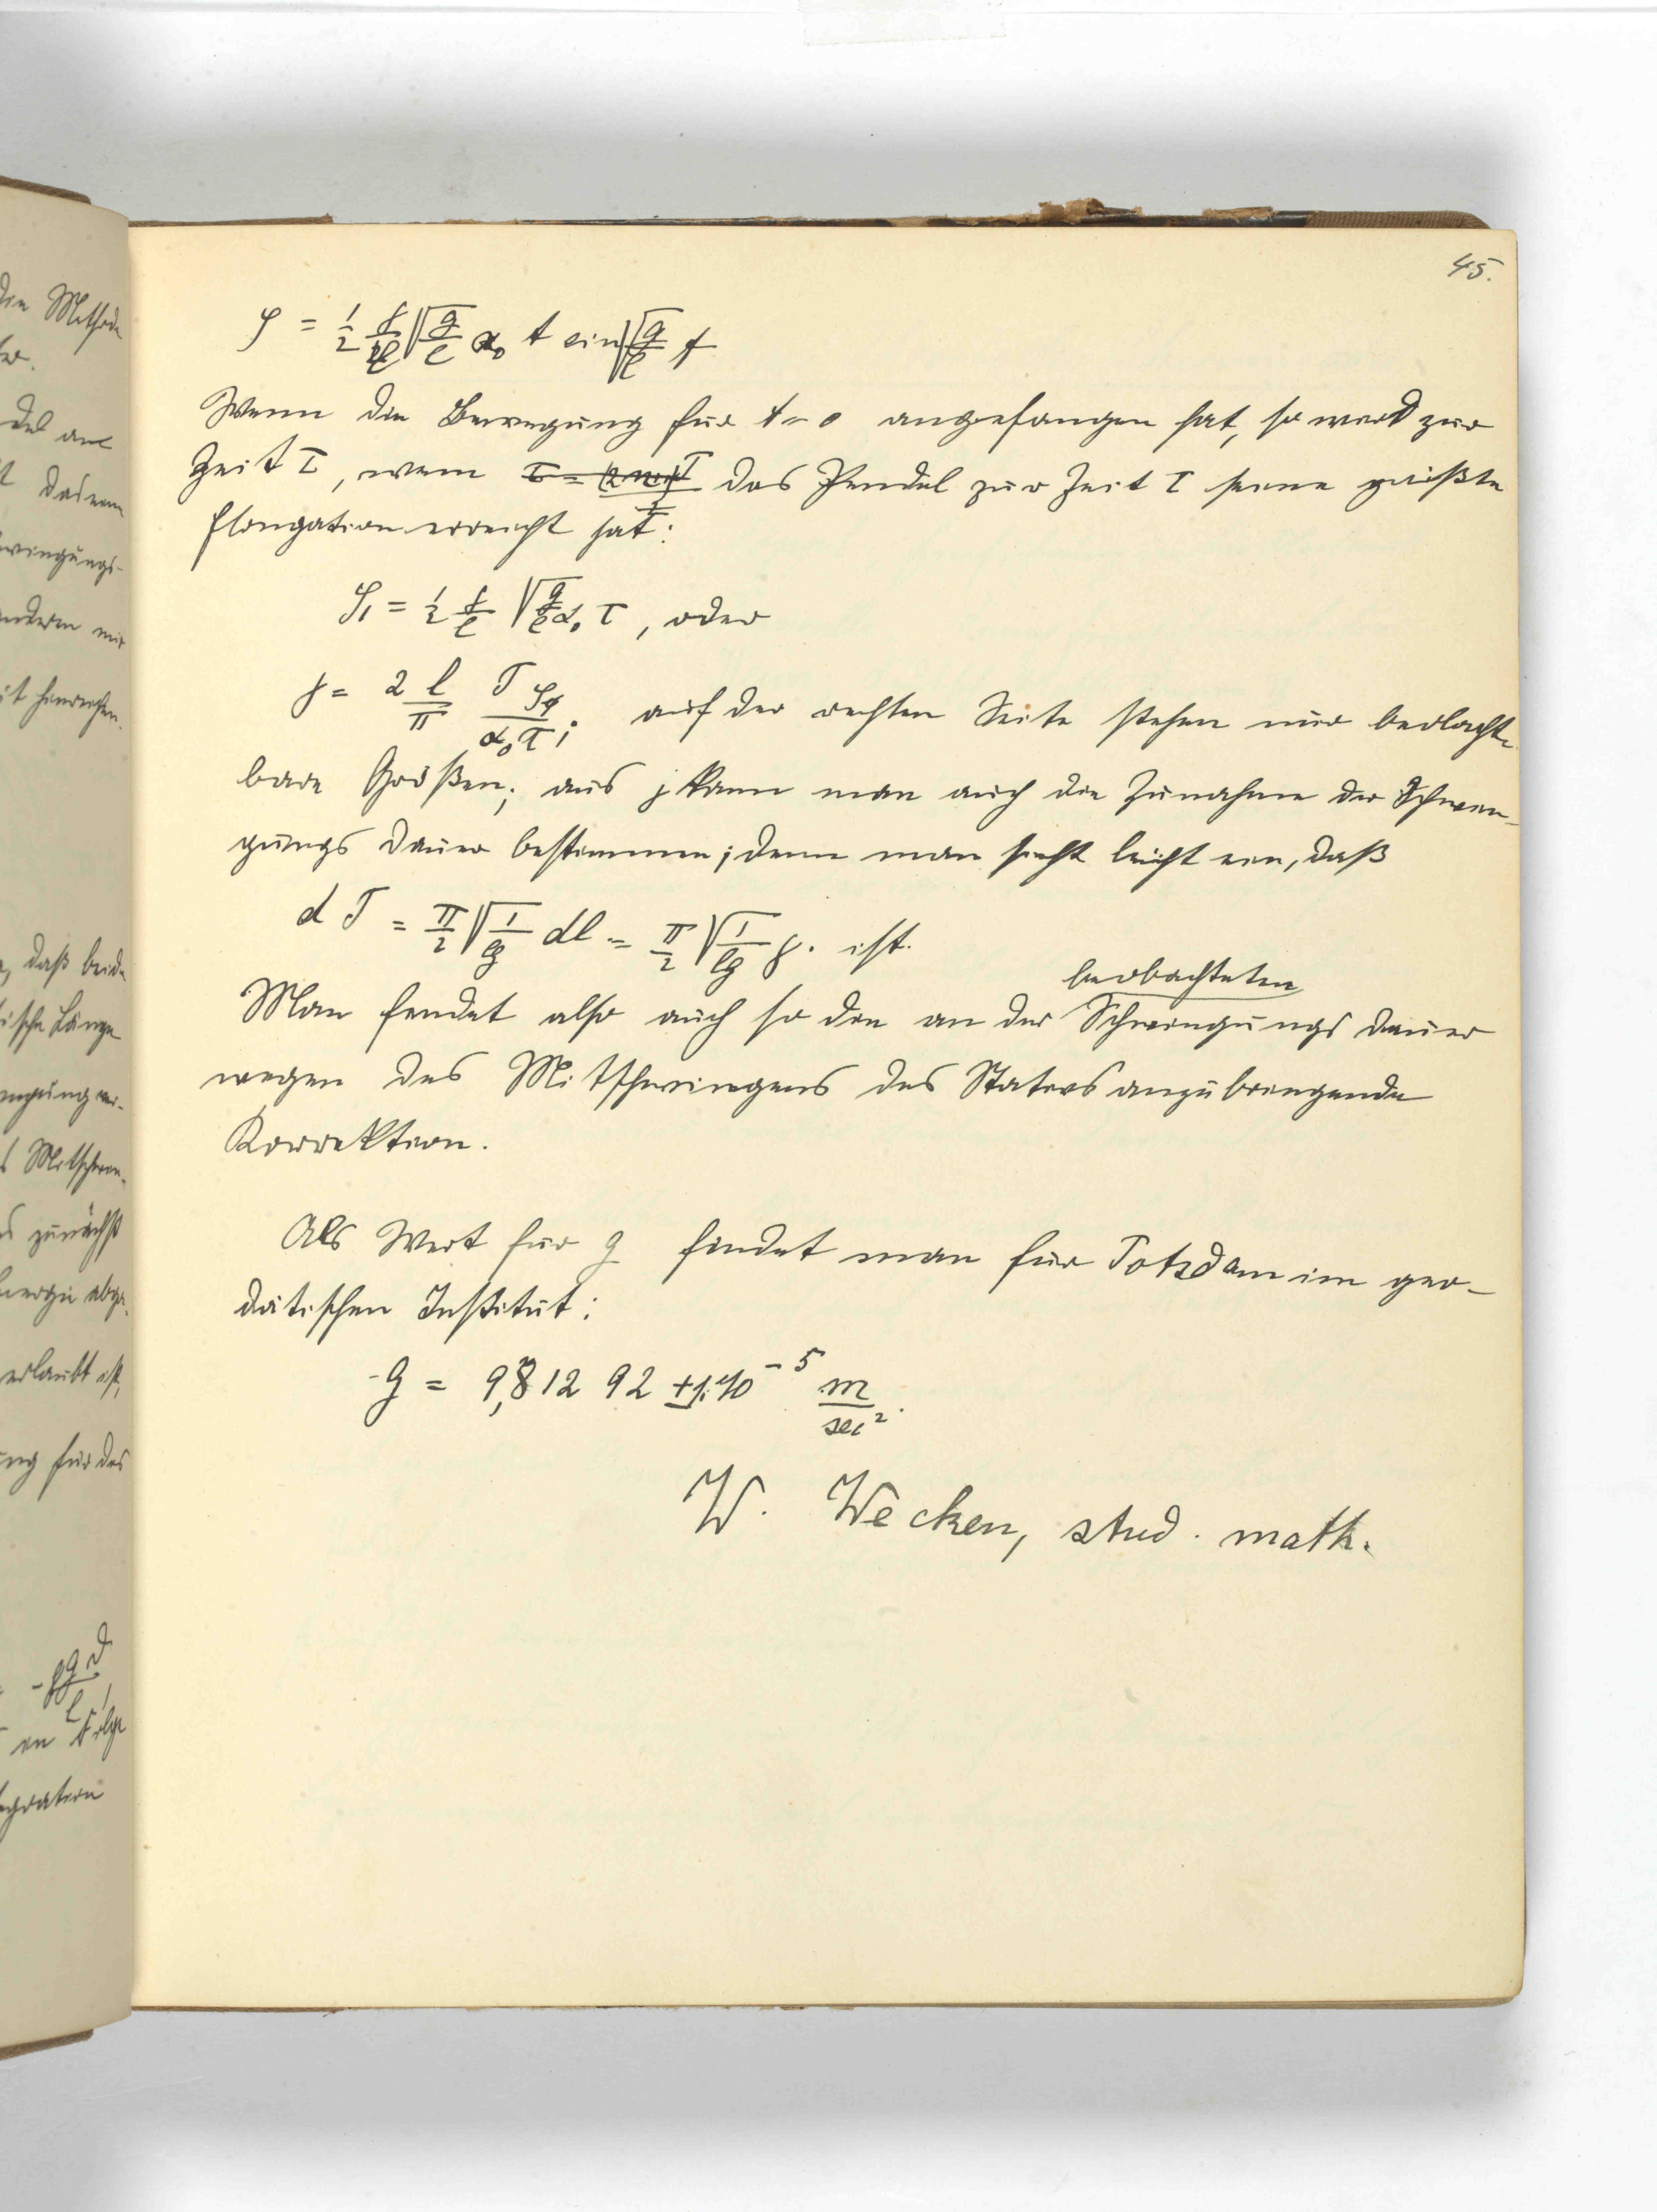 45.
φ = 1/2 γ/l √g/l α₀ t sin √g/l t
Wenn die Bewegung für t = 0 angefangen hat, so wird zur
Zeit τ, wenn das Pendel zur Zeit τ seine größte
Elongation erreicht hat:
φ₁ = 1/2 γ/l √g/l α₀ τ, oder
γ = 2 l/π T φ₁/α₀τ; auf der rechten Seite stehen nur beobacht-
bare Größen; aus γ kann man auch die Zunahme der Schwin-
gungsdauer bestimmen; denn man sieht leicht ein, daß
dT = π/2 √1/lg dl = π/2 √1/lg γ. ist.
beobachteten
Man findet also auch so die an der Schwingungsdauer
wegen des Mitschwingens des Stativs anzubringende
Korrektion.
Als Wert für g findet man für Potsdam im geo-
dätischen Institut:
g = 9,812 92 ± 1·10⁻⁵ m/sec².
W. Wecken, stud. math.